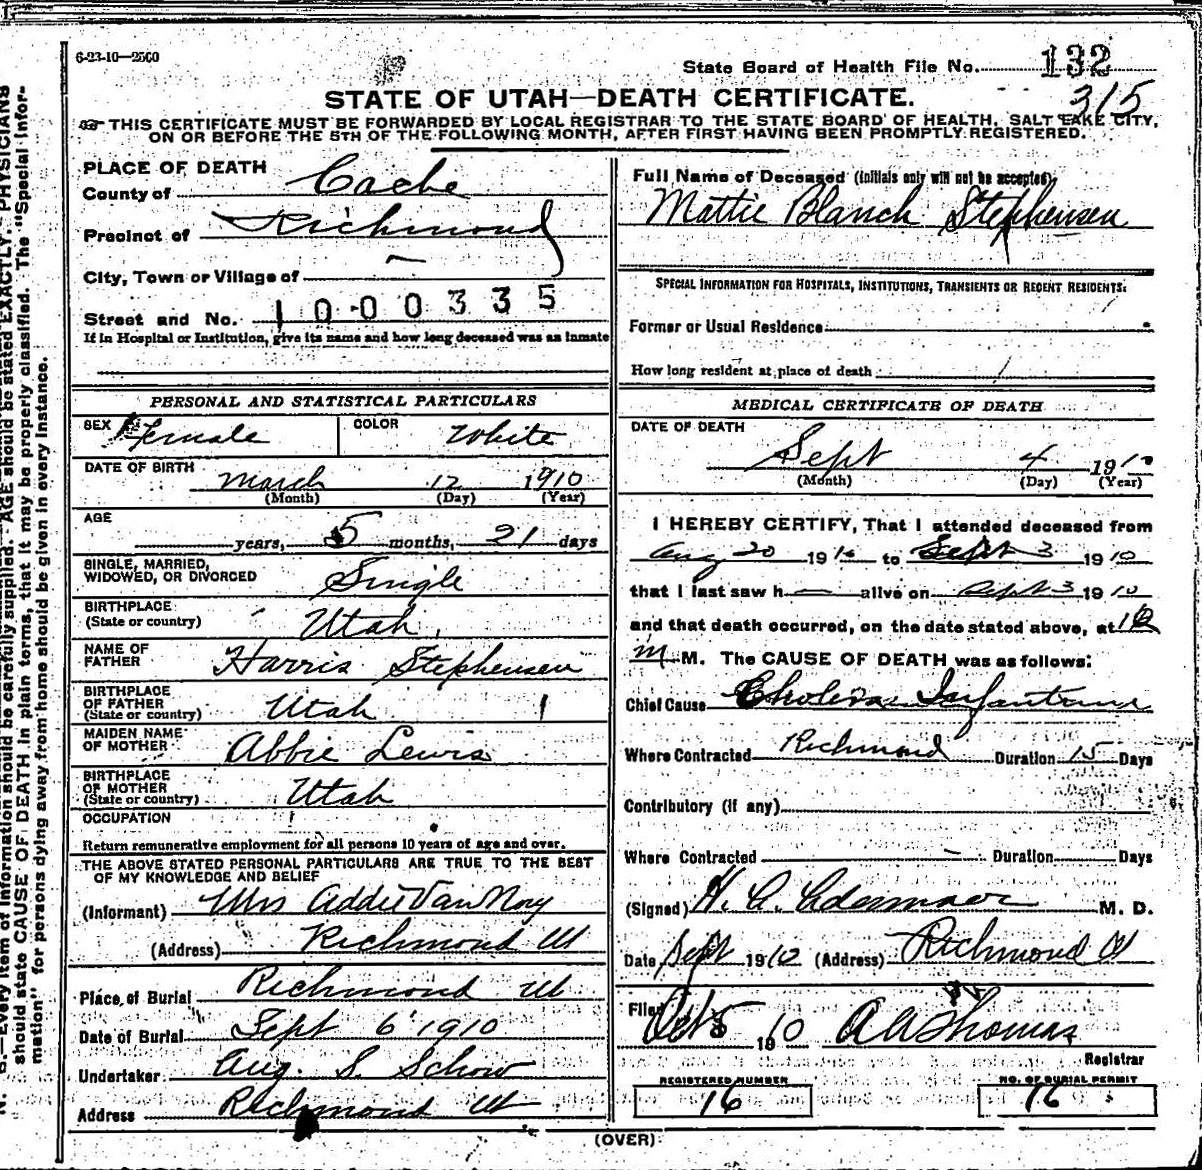 6-23-10—2500
State Board of Health File No. 132
315
STATE OF UTAH—DEATH CERTIFICATE.
THIS CERTIFICATE MUST BE FORWARDED BY LOCAL REGISTRAR TO THE STATE BOARD OF HEALTH, SALT LAKE CITY,
ON OR BEFORE THE 5TH OF THE FOLLOWING MONTH, AFTER FIRST HAVING BEEN PROMPTLY REGISTERED.
PLACE OF DEATH
County of Cache
Precinct of Richmond
City, Town or Village of —
Street and No. 10-00335
If in Hospital or Institution, give its name and how long deceased was an inmate
PERSONAL AND STATISTICAL PARTICULARS
SEX Female COLOR White
DATE OF BIRTH March 12 1910
(Month) (Day) (Year)
AGE
years, 5 months, 21 days
SINGLE, MARRIED,
WIDOWED, OR DIVORCED Single
BIRTHPLACE
(State or country) Utah
NAME OF
FATHER Harris Stephensen
BIRTHPLACE
OF FATHER
(State or country) Utah
MAIDEN NAME
OF MOTHER Abbie Lewis
BIRTHPLACE
OF MOTHER
(State or country) Utah
OCCUPATION
Return remunerative employment for all persons 10 years of age and over.
THE ABOVE STATED PERSONAL PARTICULARS ARE TRUE TO THE BEST
OF MY KNOWLEDGE AND BELIEF
(Informant) Mrs Addie Van Noy
(Address) Richmond Ut
Place of Burial Richmond Ut
Date of Burial Sept 6 1910
Undertaker Aug. S. Schow
Address Richmond Ut
Full Name of Deceased (initials only will not be accepted)
Mattie Blanch Stephensen
SPECIAL INFORMATION FOR HOSPITALS, INSTITUTIONS, TRANSIENTS OR RECENT RESIDENTS:
Former or Usual Residence
How long resident at place of death
MEDICAL CERTIFICATE OF DEATH
DATE OF DEATH
Sept 4 1910
(Month) (Day) (Year)
I HEREBY CERTIFY, That I attended deceased from
Aug 20 1910 to Sept 3 1910
that I last saw h — alive on Sept 3 1910
and that death occurred, on the date stated above, at
M. The CAUSE OF DEATH was as follows:
Chief Cause Cholera Infantum
Where Contracted Richmond Duration 15 Days
Contributory (if any)
Where Contracted Duration Days
(Signed) H. A. M. D.
Date Sept 1910 (Address) Richmond Ut
Filed Oct 5 1910 A A Thomas
Registrar
REGISTERED NUMBER
16
NO. OF BURIAL PERMIT
16
(OVER)
N. B.—Every item of information should be carefully supplied. AGE should be stated EXACTLY. PHYSICIANS
should state CAUSE OF DEATH in plain terms, that it may be properly classified. The "Special Infor-
mation" for persons dying away from home should be given in every instance.